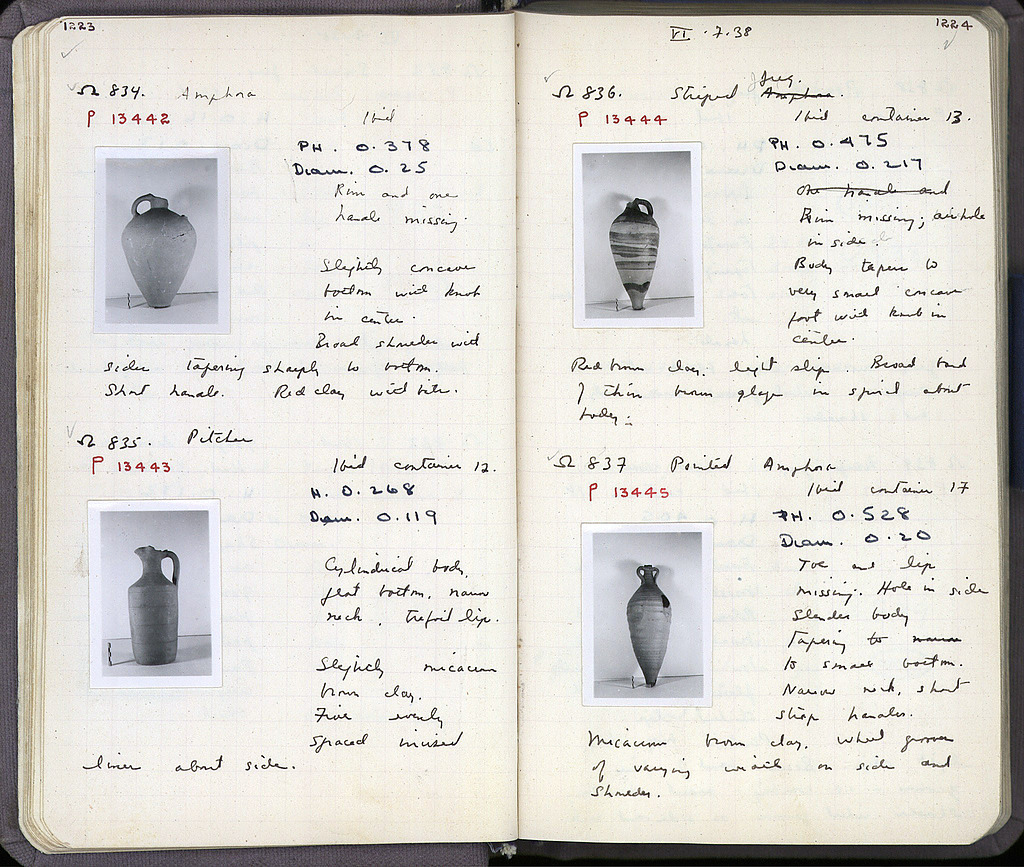 1223
Ω 834. Amphora
P 13442 Ibid
PH. 0.378
Diam. 0.25
Rim and one
handle missing.
Slightly concave
bottom with knob
in center.
Broad shoulder with
sides tapering sharply to bottom.
Short handle. Red clay with bits.
Ω 835. Pitcher
P 13443 Ibid container 12.
H. 0.268
Diam. 0.119
Cylindrical body,
flat bottom, narrow
neck, trefoil lip.
Slightly micaceous
brown clay.
Five evenly
spaced incised
lines about side.
1224
VI.7.38
Jug.
Ω 836. Striped Amphora.
P 13444 Ibid container 13.
PH. 0.475
Diam. 0.217
One handle and
Rim missing; airhole
in side
Body tapers to
very small concave
foot with knob in
center.
Red brown clay. Light slip. Broad band
of thin brown glaze in spiral about
body.
Ω 837 Pointed Amphora
P 13445 Ibid container 17
PH. 0.528
Diam. 0.20
Toe and lip
missing. Hole in side
Slender body
tapering to narrow
to small bottom.
Narrow neck, short
strap handles.
Micaceous brown clay. Wheel grooves
of varying width on side and
shoulder.